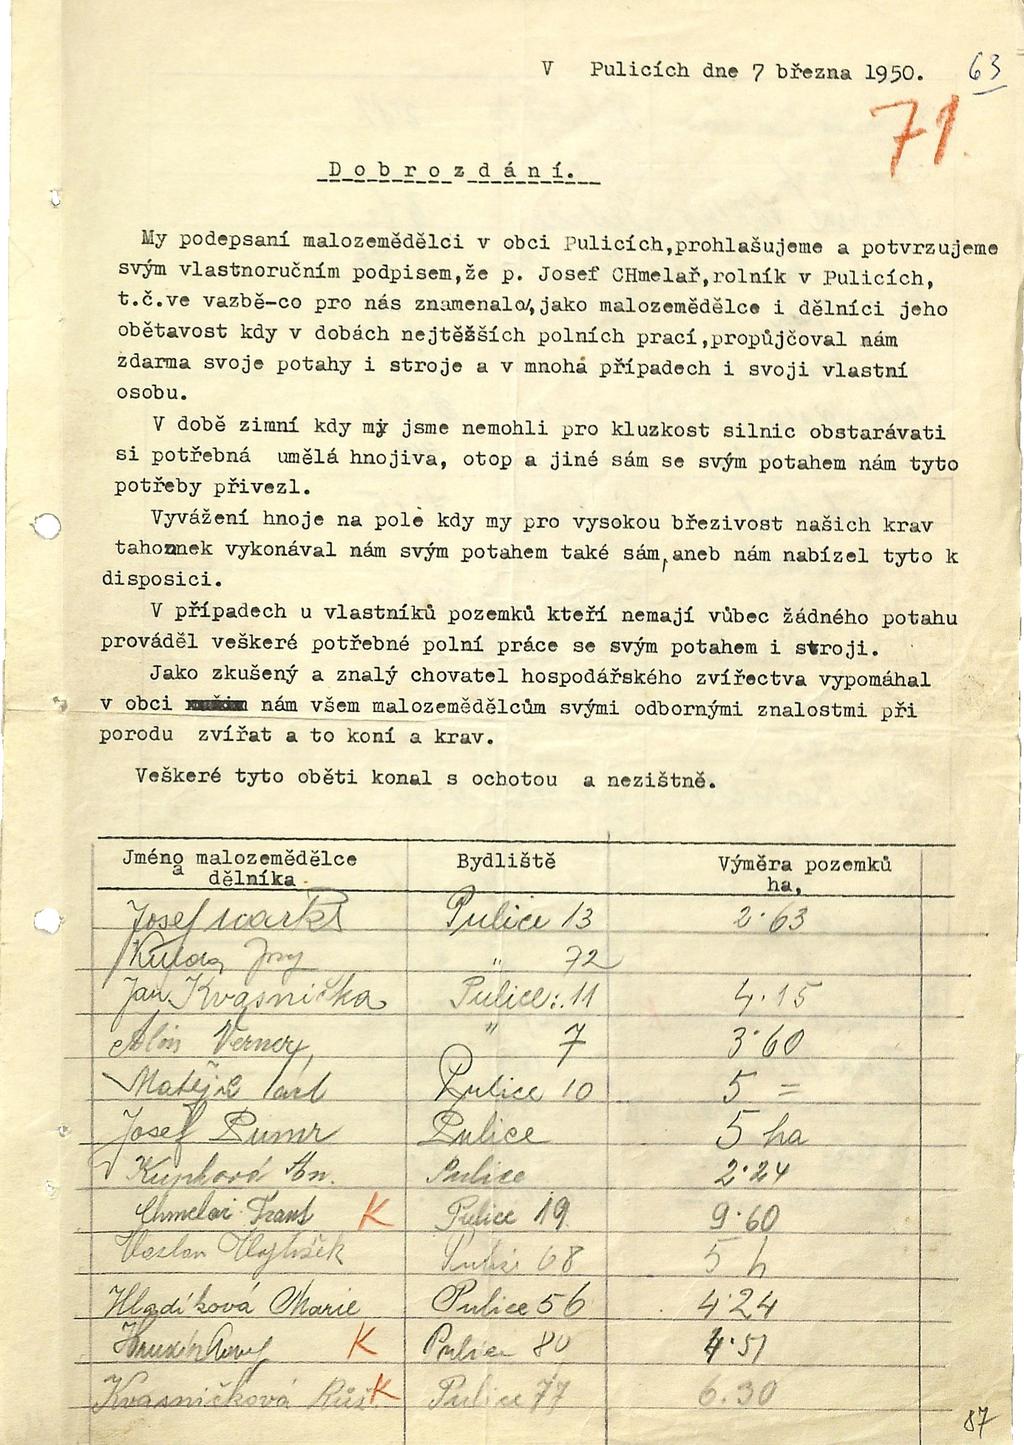 V Pulicích dne 7 března 1950. 63
71.
Dobrozdání.
My podepsaní malozemědělci v obci Pulicích,prohlašujeme a potvrzujeme
svým vlastnoručním podpisem,že p. Josef CHmelař,rolník v Pulicích,
t.č.ve vazbě-co pro nás znamenalo,jako malozemědělce i dělníci jeho
obětavost kdy v dobách nejtěžších polních prací,propůjčoval nám
zdarma svoje potahy i stroje a v mnohá případech i svoji vlastní
osobu.
V době zimní kdy my jsme nemohli pro kluzkost silnic obstarávati
si potřebná umělá hnojiva, otop a jiné sám se svým potahem nám tyto
potřeby přivezl.
Vyvážení hnoje na pole kdy my pro vysokou březivost našich krav
tahounek vykonával nám svým potahem také sám,aneb nám nabízel tyto k
disposici.
V případech u vlastníků pozemků kteří nemají vůbec žádného potahu
prováděl veškeré potřebné polní práce se svým potahem i stroji.
Jako zkušený a znalý chovatel hospodářského zvířectva vypomáhal
v obci nám všem malozemědělcům svými odbornými znalostmi při
porodu zvířat a to koní a krav.
Veškeré tyto oběti konal s ochotou a nezištně.
Jméno malozemědělce a dělníka. Bydliště Výměra pozemků ha,
Josef Pulice 13 2·63
" 72
Jan Kvasnička Pulice: 11 4·15
Verner " 7 3·60
Matějíč Pulice 10 5 =
Josef Pulice 5 ha
Kupková An. Pulice 2·24
Chmelař Frant K Pulice 19 9·60
68 5 h
Hladíková Marie Pulice 56 4·24
K Pulice 80 4·51
Kvasničková Růž. K Pulice 77 6.30
87